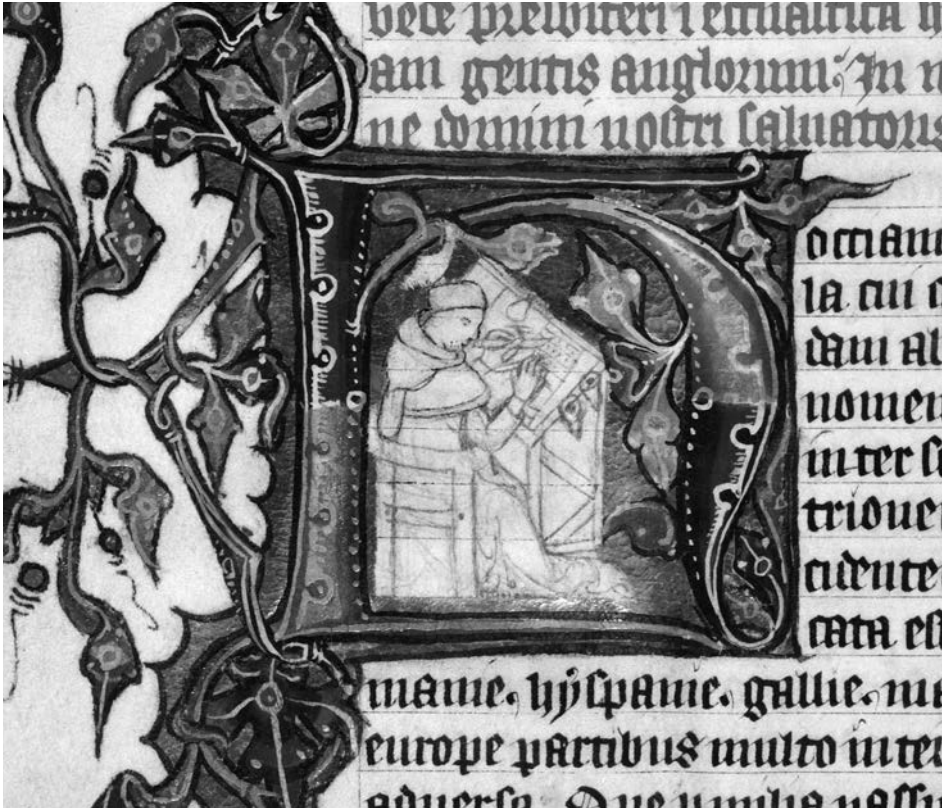 bede presbiteri i
am gentis anglorum. In
ne domini nostri salvatoris
occiani
la cui
dam al
nomen
inter se
trione
cidente
cata est
manie. hyspanie. gallie. m
europe partibus multo inter
adversa. Que milia passu